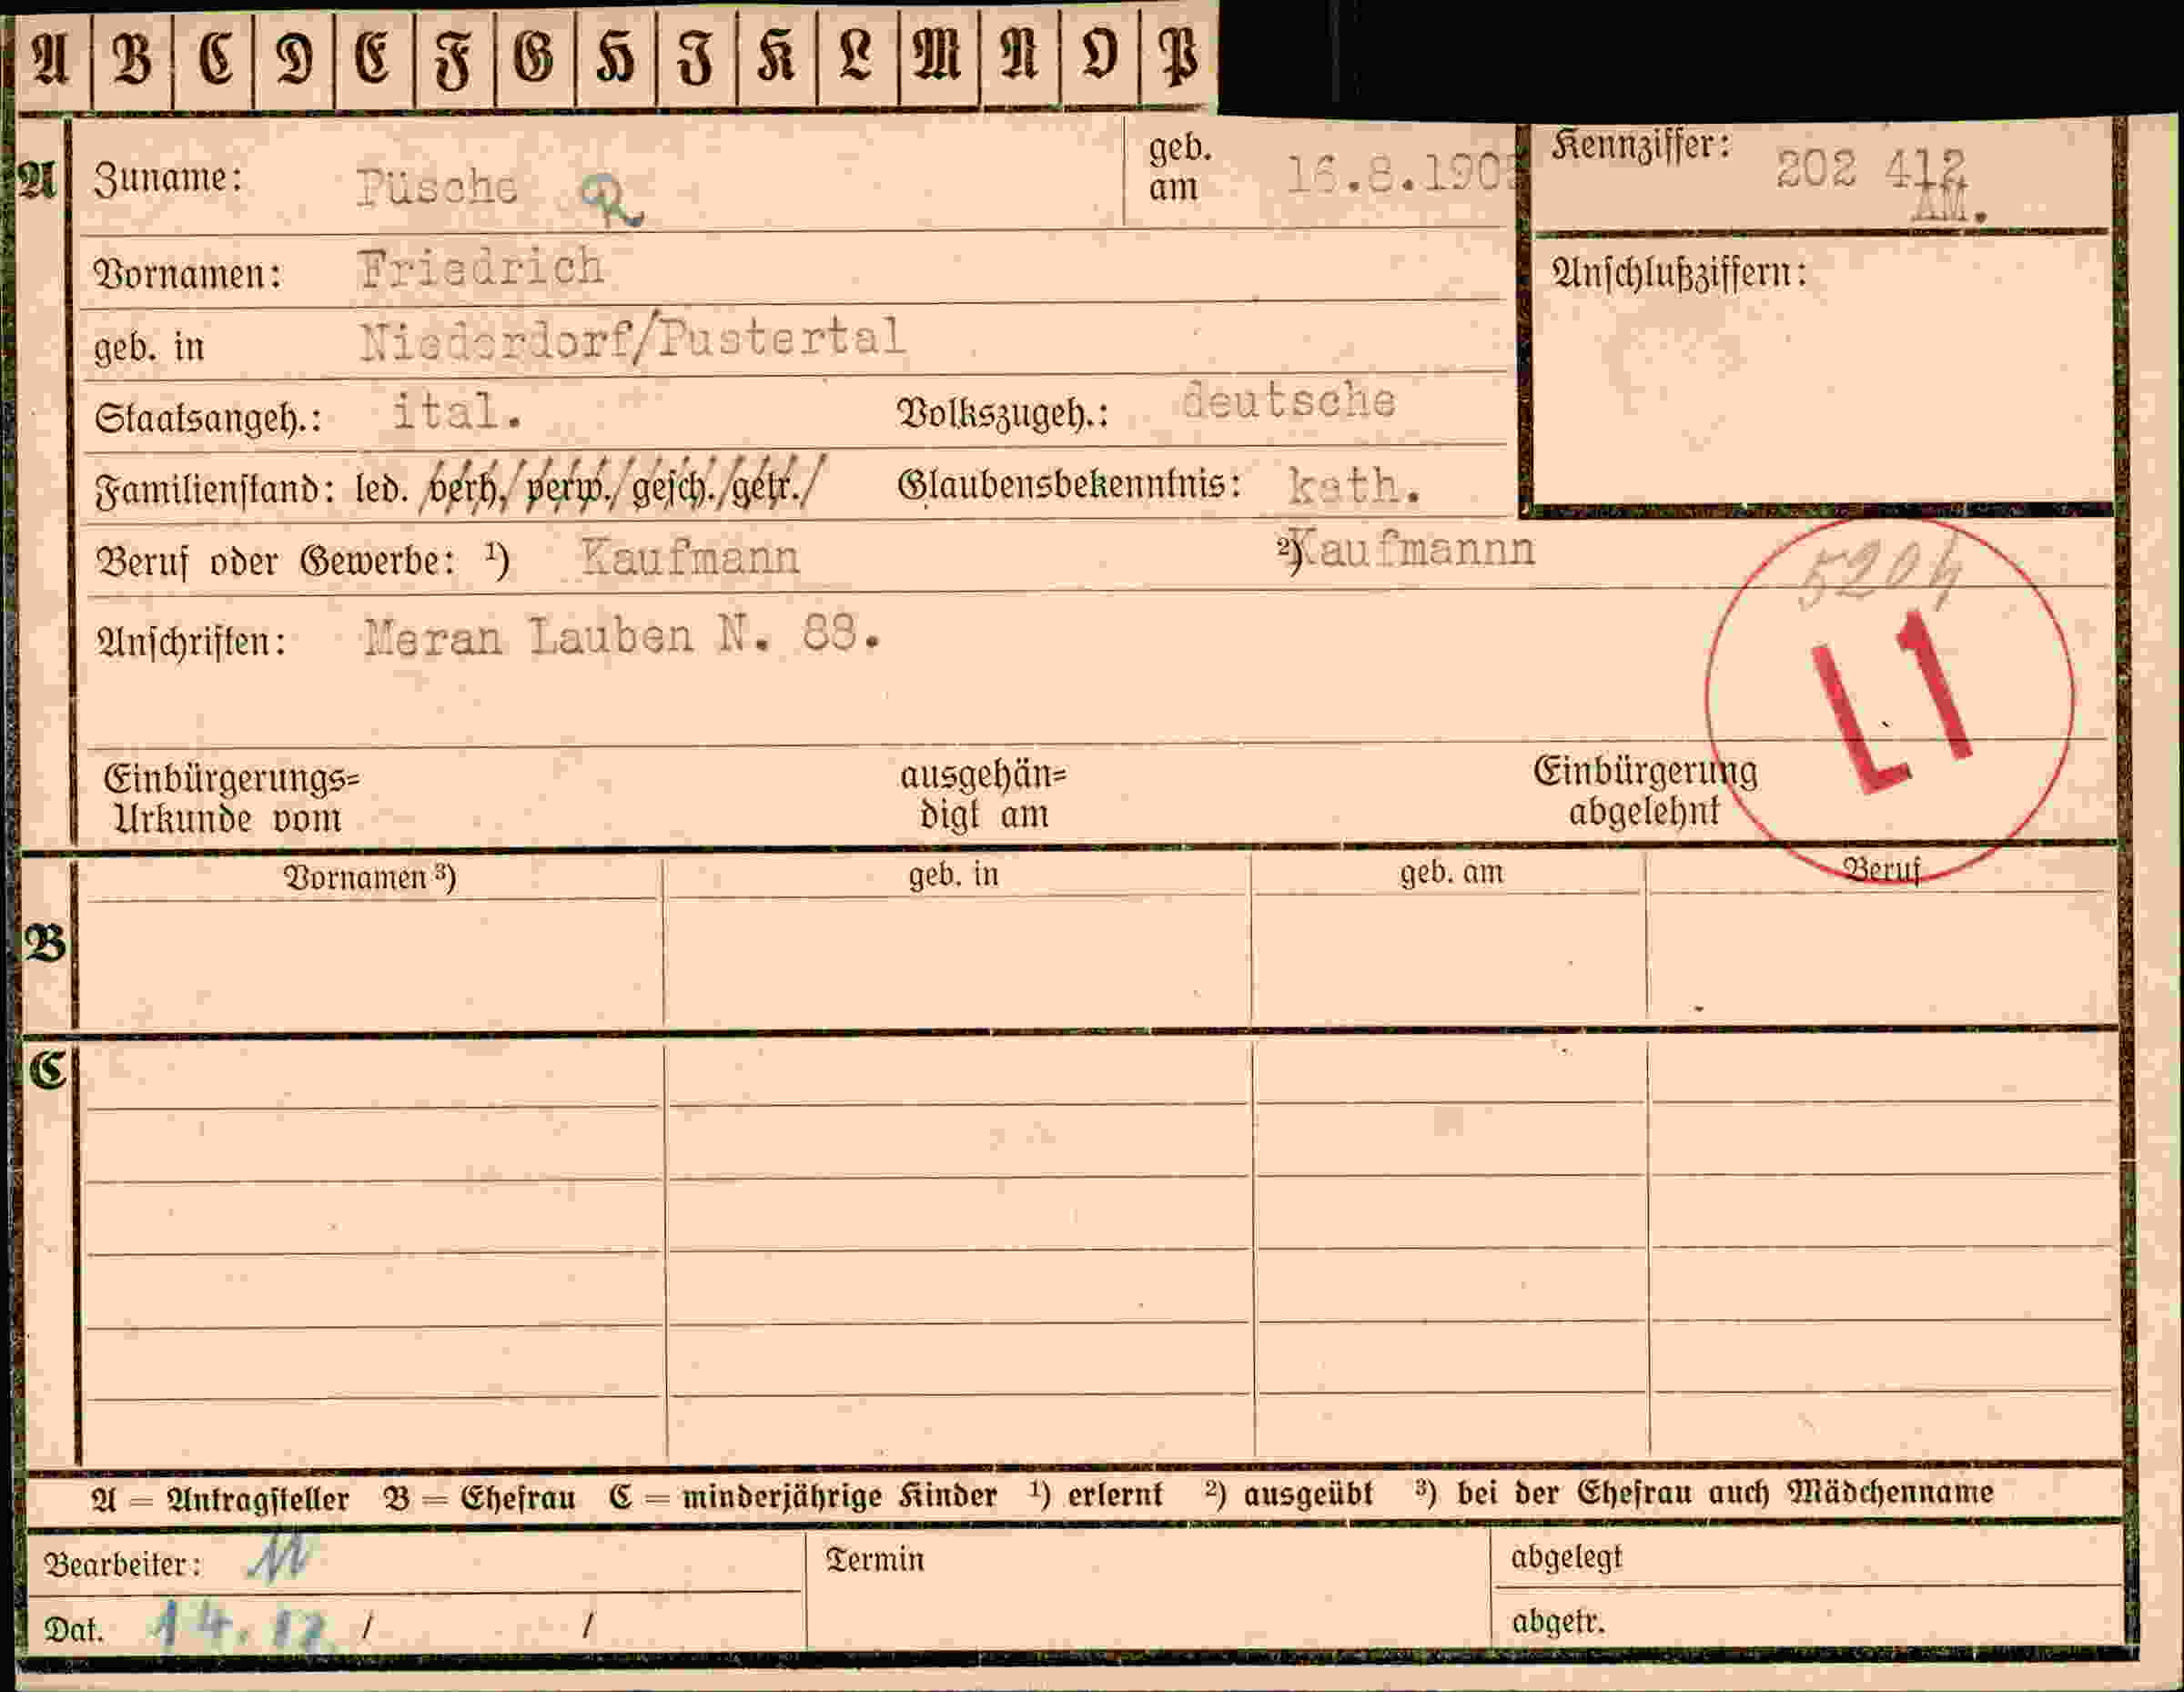 A B C D E F G H I K L M N O P
A Zuname: Püsche R geb. am 16.8.190 Kennziffer: 202 412 AM.
Vornamen: Friedrich Anschlußziffern:
geb. in Niederdorf/Pustertal
Staatsangeh.: ital. Volkszugeh.: deutsche
Familienstand: led. verh. verw. gesch. getr. Glaubensbekenntnis: kath.
Beruf oder Gewerbe: ¹) Kaufmann ²) Kaufmannn
5204
Anschriften: Meran Lauben N. 88.
L1
Einbürgerungs= Urkunde vom ausgehän= digt am Einbürgerung abgelehnt
Vornamen ³) geb. in geb. am Beruf
B
C
A = Antragsteller B = Ehefrau C = minderjährige Kinder ¹) erlernt ²) ausgeübt ³) bei der Ehefrau auch Mädchenname
Bearbeiter: M Termin abgelegt
Dat. 14.12 / / abgetr.